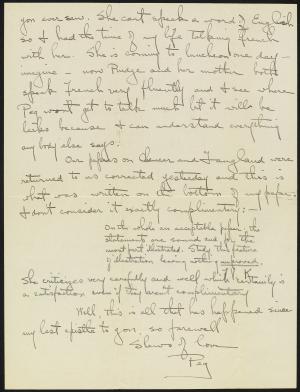 you ever saw. She can't speak a word of English
so I had the time of my life talking French
with her. She is coming to luncheon one day –
now Pudge and her mother both
speak French very fluently and I see where
Peg won't get to talk much but it will be
because I can understand everything
anybody else says.
Our papers on Chaucer and Langland were
returned to us corrected yesterday and this is
what was written on the bottom of my paper.
I don't consider it exactly complimentary:
On the whole an acceptable paper, the
statements are sound and for the
most part illustrated. Study the
of illustration having
K.
She criticizes very carefully and well which certainly is
a satisfaction even if they aren't complimentary
Well, this is all that has happened since
my last epistle to you, so farewell
Slews of love
Peg